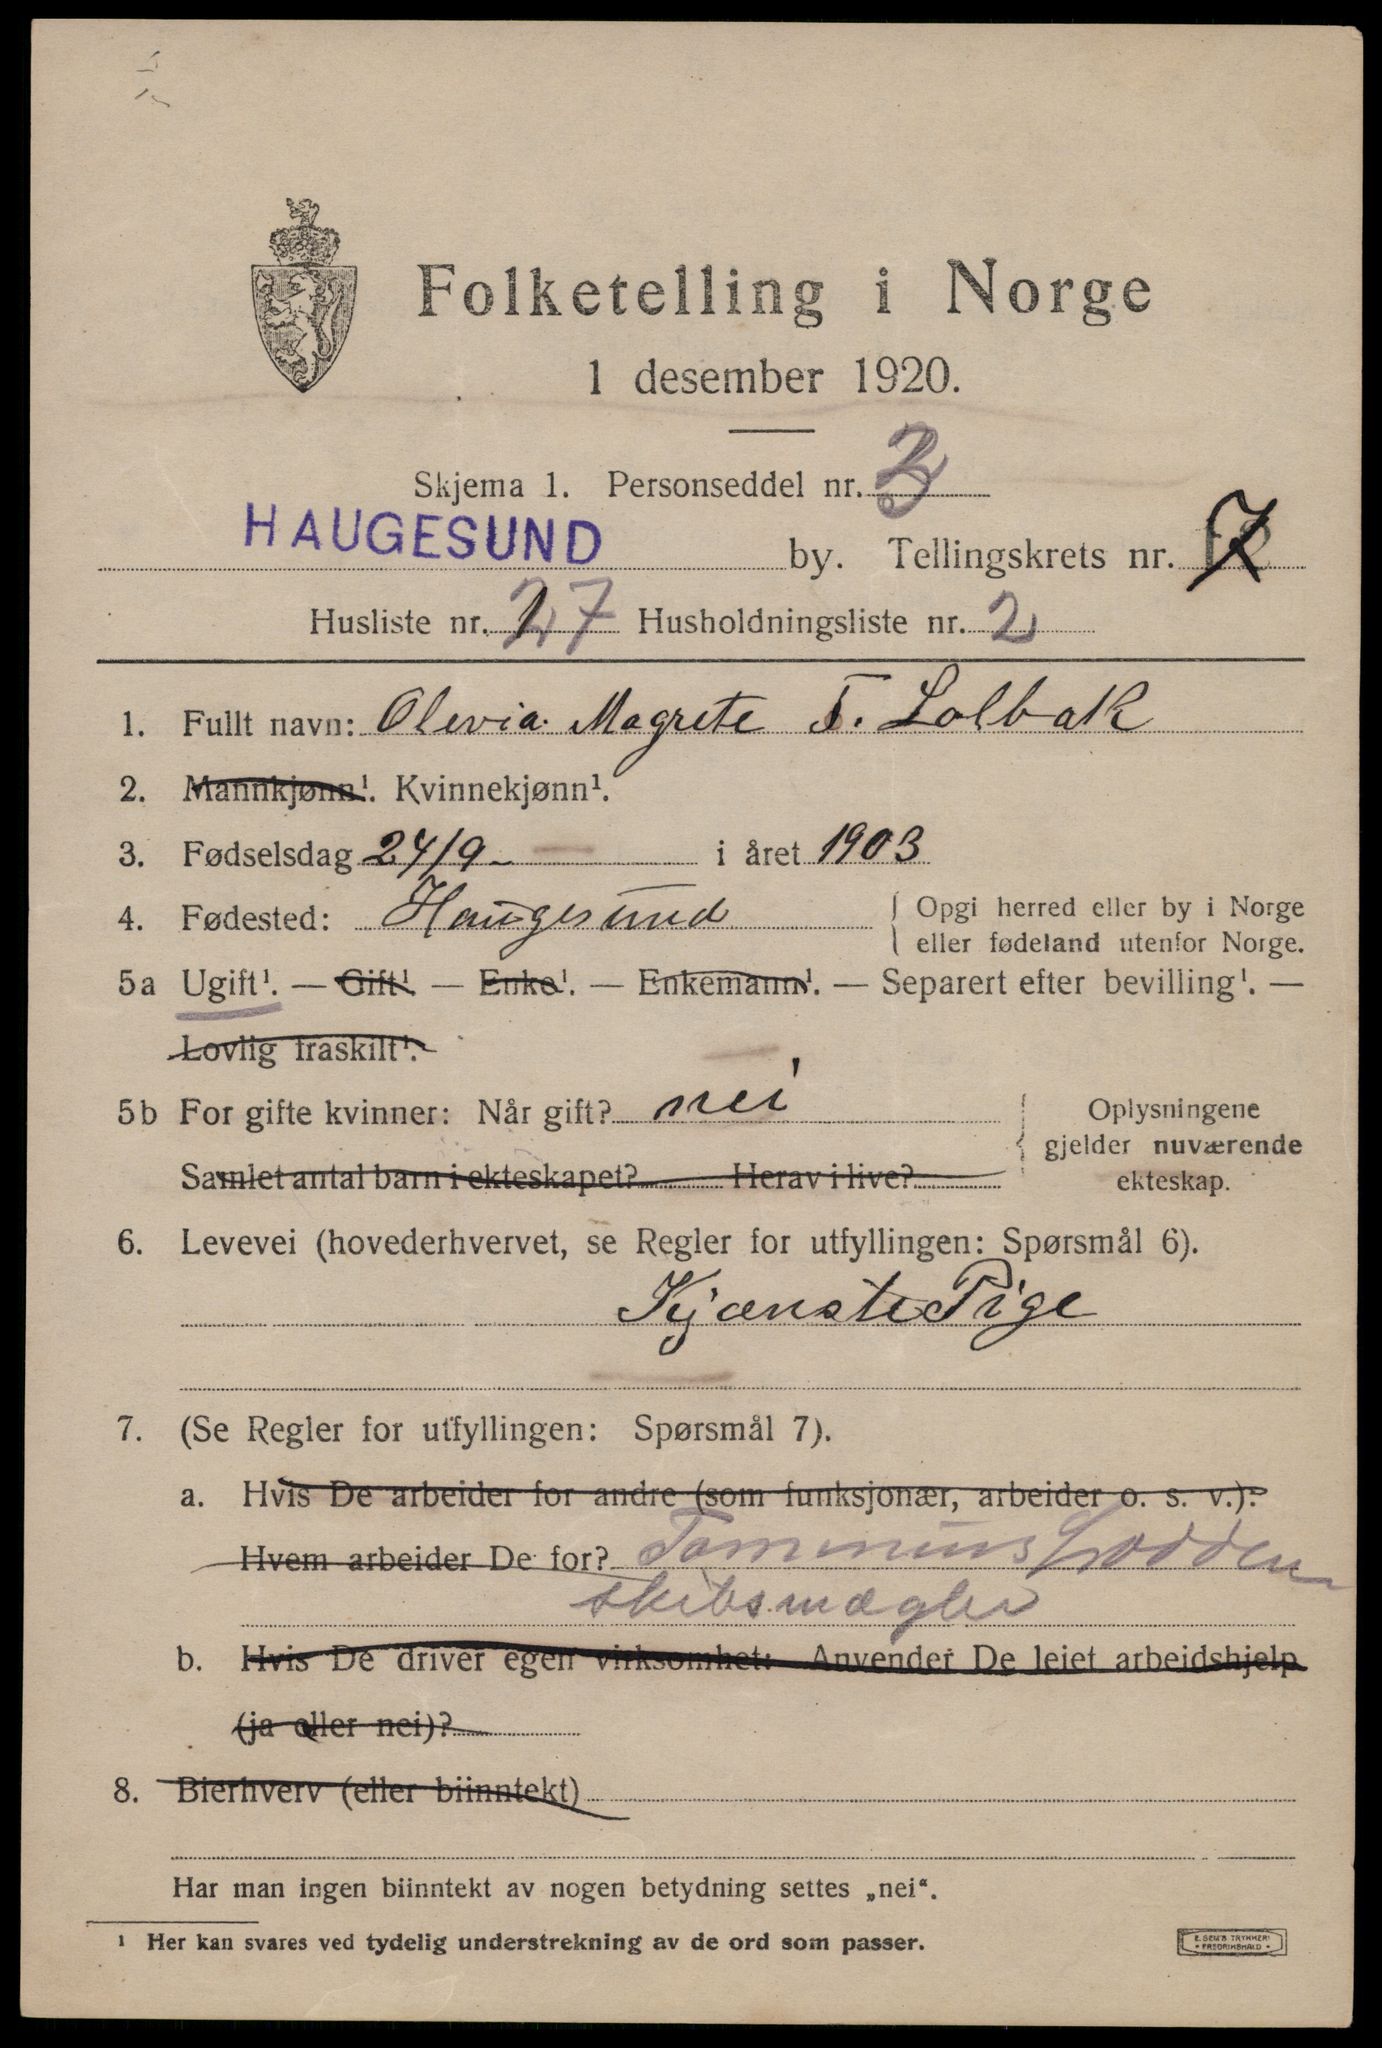 Folketelling i Norge
1 desember 1920.
Skjema 1. Personseddel nr. 3
HAUGESUND by. Tellingskrets nr. 7
Husliste nr. 27 Husholdningsliste nr. 2
1. Fullt navn: Olevia Magrete T. Solbak
2. Mannkjønn¹. Kvinnekjønn¹.
3. Fødselsdag 24/9 - i året 1903
4. Fødested: Haugesund { Opgi herred eller by i Norge
eller fødeland utenfor Norge.
5a Ugift¹. — Gift¹. — Enke¹. — Enkemann¹. — Separert efter bevilling¹. —
Lovlig fraskilt¹.
5b For gifte kvinner: Når gift? nei { Oplysningene
gjelder nuværende
Samlet antal barn i ekteskapet? Herav i live?
ekteskap.
6. Levevei (hovederhvervet, se Regler for utfyllingen: Spørsmål 6).
Kjænste Pige
7. (Se Regler for utfyllingen: Spørsmål 7).
a. Hvis De arbeider for andre (som funksjonær, arbeider o. s. v.):
Hvem arbeider De for? Tommins Lodden
skibsmægler
b. Hvis De driver egen virksomhet: Anvender De leiet arbeidshjelp
(ja eller nei)?
8. Bierhverv (eller biinntekt)
Har man ingen biinntekt av nogen betydning settes „nei“.
¹ Her kan svares ved tydelig understrekning av de ord som passer.
E. SEM'S TRYKKERI
FREDRIKSHALD